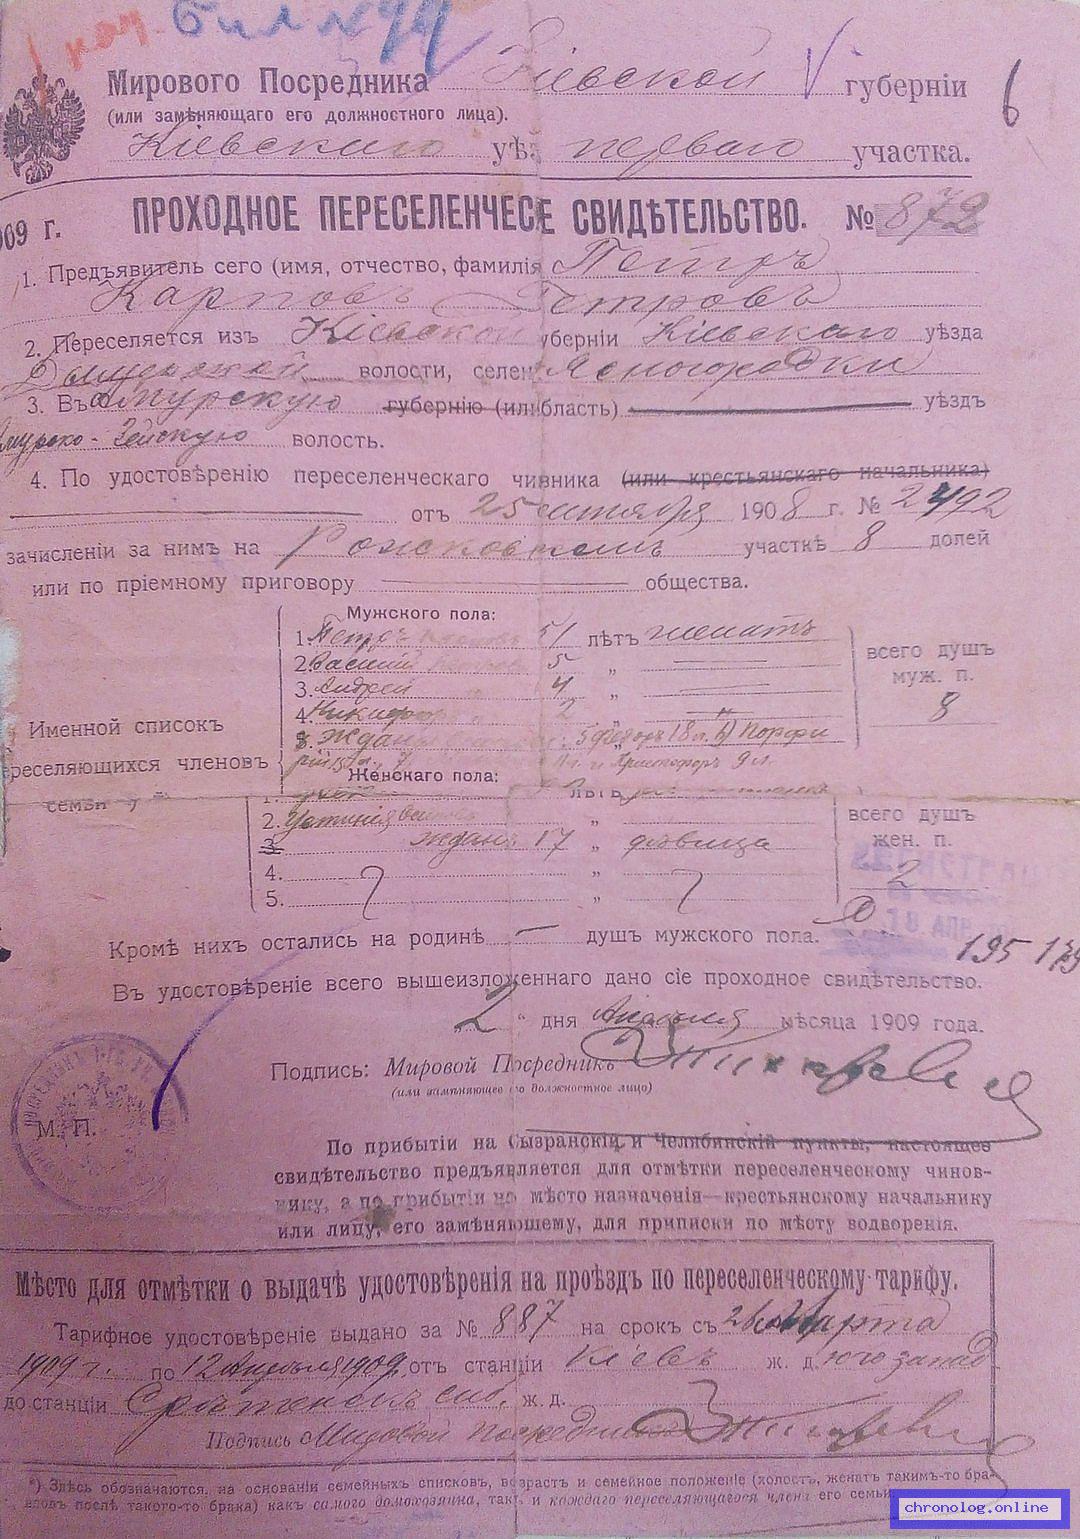 Билл №99
Мирового Посредника Кіевской губерніи
6
(или замѣняющаго его должностного лица).
Кіевскаго уѣз перваго участка.
909 г. ПРОХОДНОЕ ПЕРЕСЕЛЕНЧЕСЕ СВИДѢТЕЛЬСТВО. № 872
1. Предъявитель сего (имя, отчество, фамилія Петръ
Карповъ Петровъ
2. Переселяется изъ Кіевской уберніи Кіевскаго уѣзда
волости, селен Ясногородки
3. Въ Амурскую губернію (или бласть) уѣздъ
Амурско-Зейскую волость.
4. По удостовѣренію переселенческаго чивника (или крестьянскаго начальника)
отъ 25 сентября 1908 г. № 2492
зачисленіи за нимъ на участкѣ 8 долей
или по пріемному приговору общества.
Мужского пола:
1. Петръ Карповъ 51 лѣтъ женатъ
всего душъ
2. Василій Петровъ 5 „
муж. п.
3. Андрей „ 4 „
8
4. Никифоръ „ 2 „ „
Жданъ 5 Федоръ 18 л. Порфи
Именной списокъ
рій 9 л.
ереселяющихся членовъ
Женскаго пола:
семьи
лѣтъ
2. Устинія „
всего душъ
жен. п.
3. Жданъ 17 „ дѣвица
2
4. „
5. „
18 АПР
Кромѣ нихъ остались на родинѣ — душъ мужского пола.
195
Въ удостовѣреніе всего вышеизложеннаго дано сіе проходное свидѣтельство.
2 „ дня Апрѣля мѣсяца 1909 года.
Подпись: Мировой Посредникъ
(или замѣняющее его должностное лицо)
М. П.
По прибытіи на Сызранскій и Челябинскій пункты, настоящее
свидѣтельство предъявляется для отмѣтки переселенческому чинов-
нику, а по прибытіи на мѣсто назначенія—крестьянскому начальнику
или лицу, его замѣняющему, для приписки по мѣсту водворенія.
Мѣсто для отмѣтки о выдачѣ удостовѣренія на проѣздъ по переселенческому тарифу.
Тарифное удостовѣреніе выдано за № 887 на срокъ съ Марта
1909 г. по 12 Апрѣля 1909, отъ станціи Кіевъ ж. д. юго запад
до станціи Срѣтенскъ сиб, ж. д.
Подпись Мировой Посредникъ
*) Здѣсь обозначаются, на основаніи семейныхъ списковъ, возрастъ и семейное положеніе (холостъ, женатъ такимъ-то бра-
комъ послѣ такого-то брака) какъ самого домохозяина, такъ и каждаго переселяющагося члена его семьи
chronolog.online